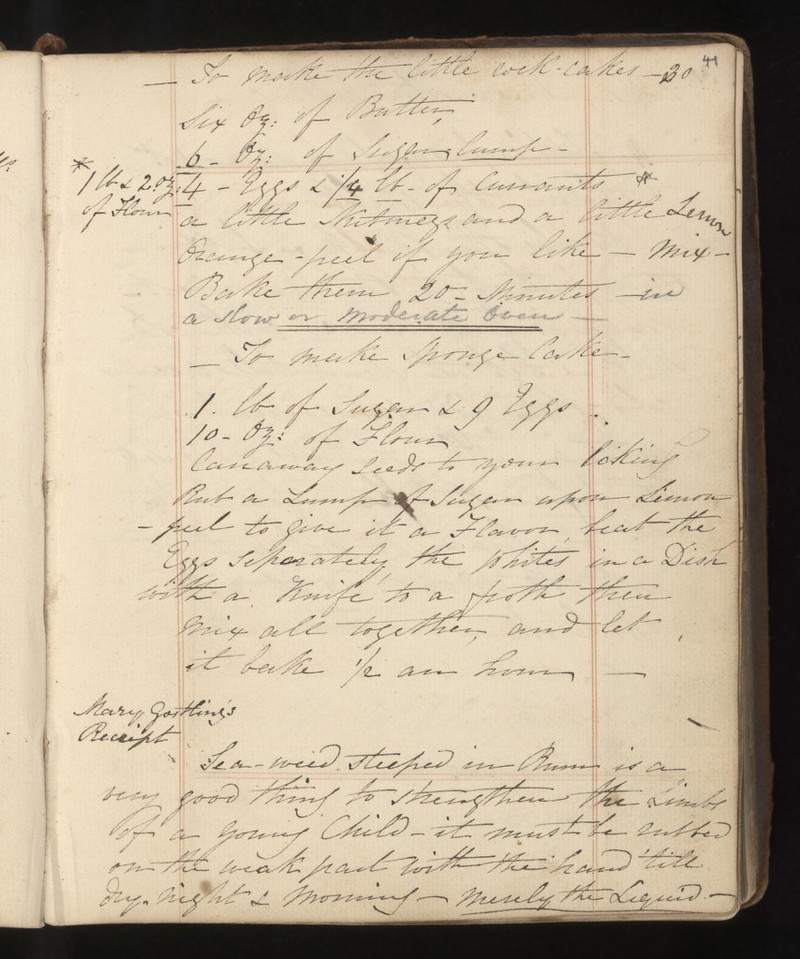 41
— To make the little rock-cakes — 30
Six Oz: of Butter
6 - Oz: of Sugar, lump -
*
1 lb & 2 oz:
of Flour
4 - Eggs & 1/4 lb - of Currants *
a little Nutmeg, and a little Lemon
Orange - peel if you like — Mix -
Bake them 20 - Minutes — in
a slow or moderate Oven —
— To make Sponge Cake -
1. lb of Sugar & 9 Eggs .
10 - Oz: of Flour
Carraway Seeds to your liking
Rub a Lump of Sugar upon Lemon
- peel to give it a Flavor, beat the
Eggs seperately, the Whites in a Dish
with a Knife, to a froth then
Mix all together, and let
it bake 1/2 an hour —
Mary Gostling's
Receipt
Sea-weed steeped in Rum is a
very good thing to strengthen the Limbs
of a young Child - it must be rubbed
on the weak part with the hand 'till
dry. Night & Morning — Merely the Liquid. —